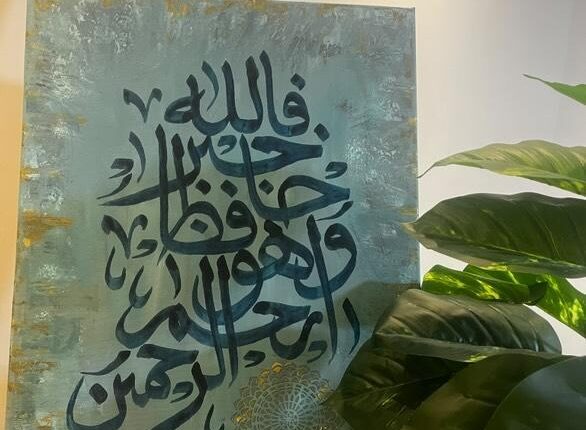 فالله
خير
حافظا
وهو
ارحم
الرحمين